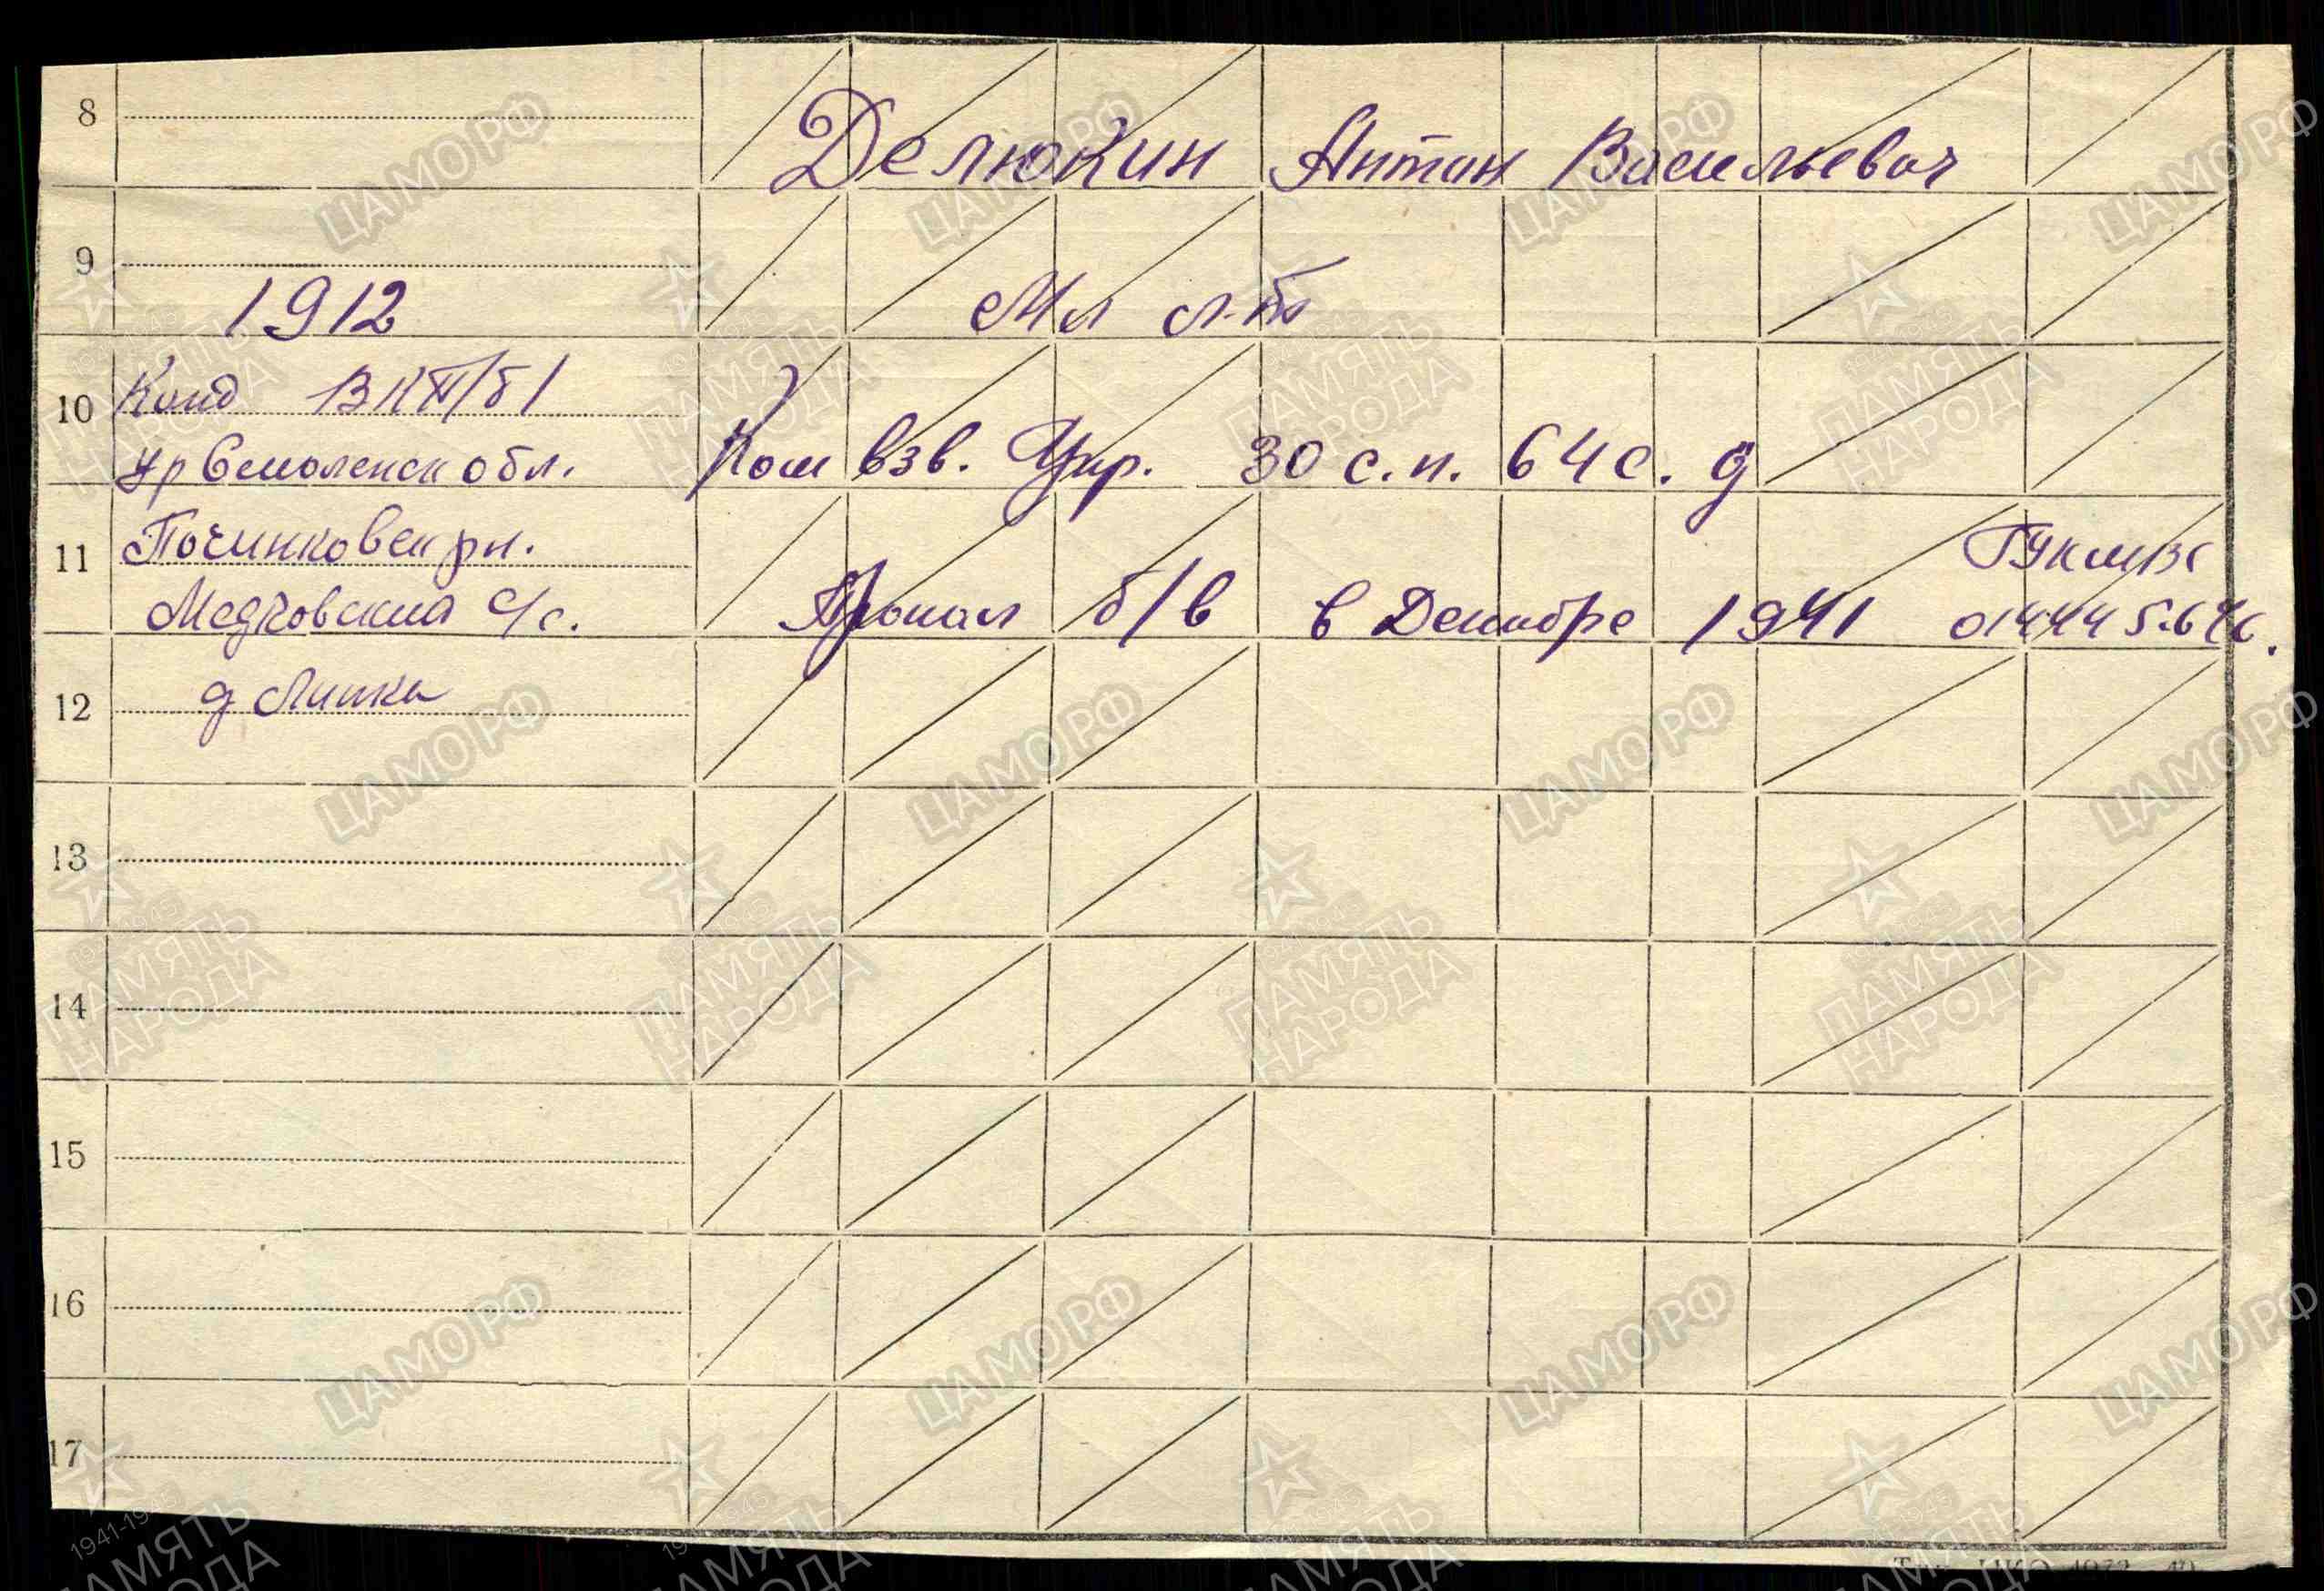 8
Делюкин Антон Васильевич
9
1912
Мл л-т
10
Канд ВКП/б/
Ком взв. Упр. 30 с.п. 64 с.д
ур Смоленск обл.
11
Починковск рн.
ГУК МВС
Медковский с/с.
Пропал б/в в Декабре 1941
д Липки
12
13
14
15
16
17
ЦАМО.РФ
ПАМЯТЬ
НАРОДА
1941-1945